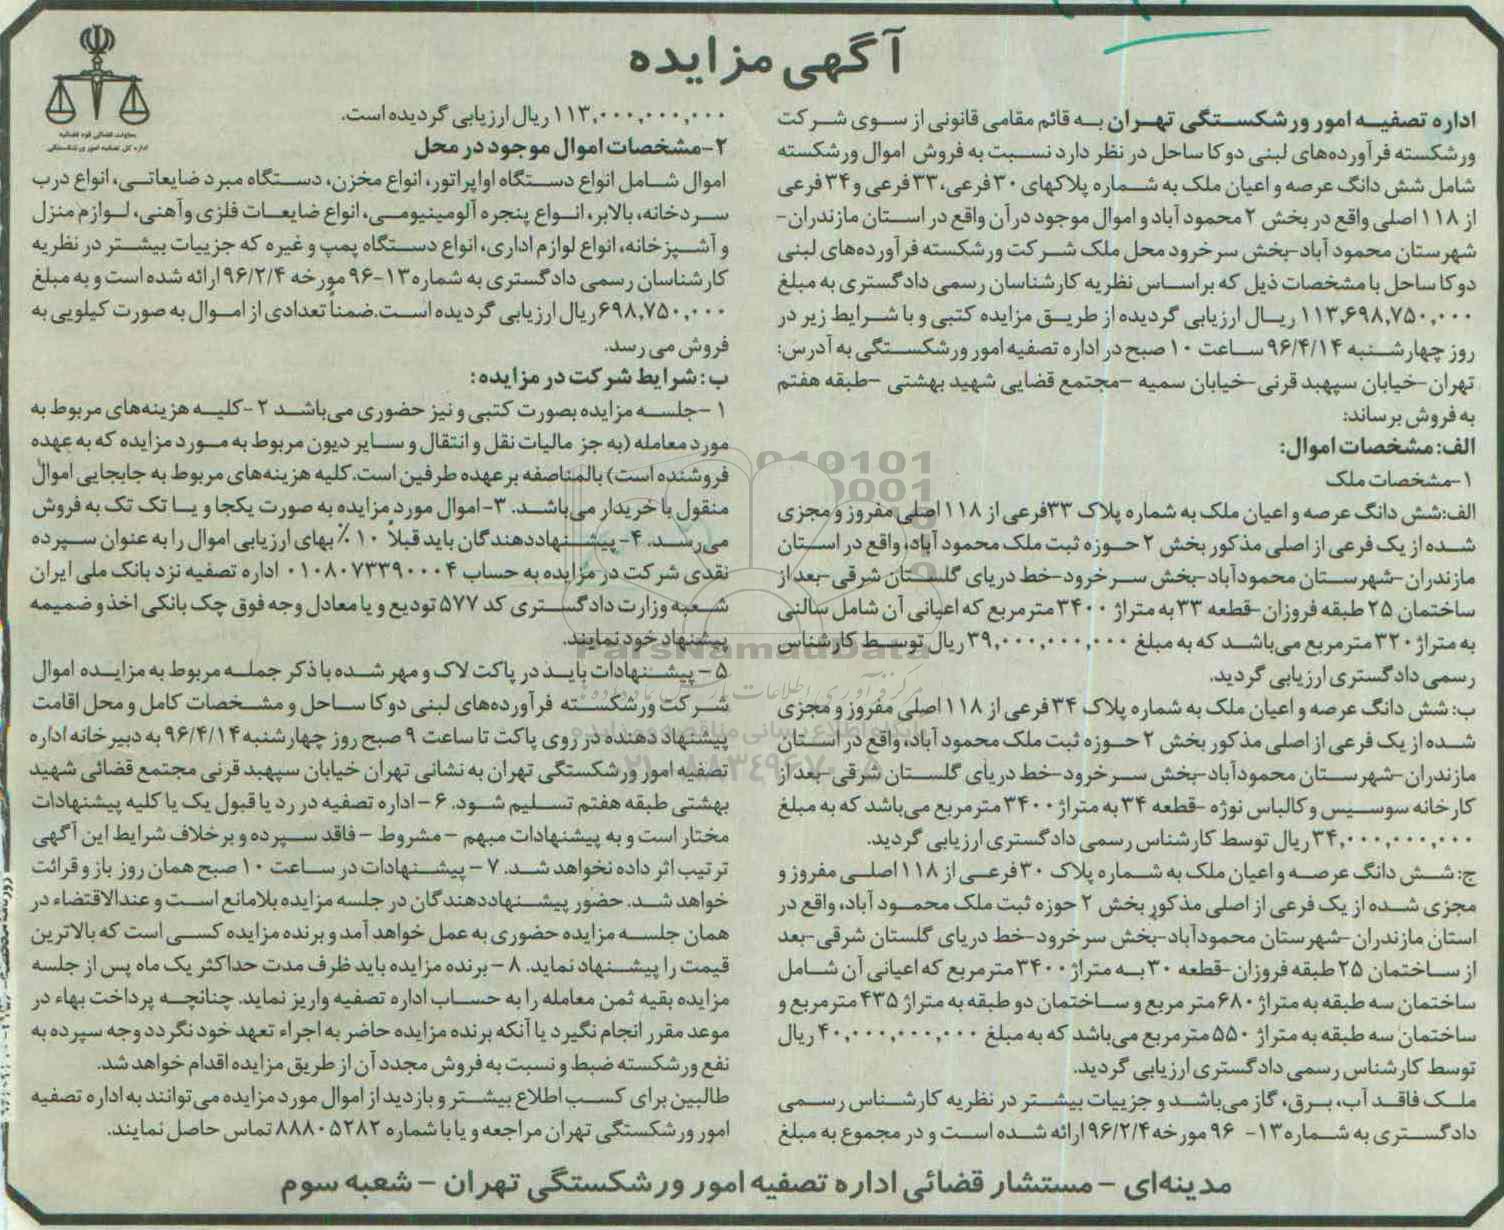 آگهی مزایده
معاونت قضائی قوه قضائیه
اداره کل تصفیه امور ورشکستگی
اداره تصفیه امور ورشکستگی تهران به قائم مقامی قانونی از سوی شرکت
ورشکسته فرآورده‌های لبنی دوکا ساحل در نظر دارد نسبت به فروش اموال ورشکسته
شامل شش دانگ عرصه و اعیان ملک به شماره پلاکهای ۳۰ فرعی، ۳۳ فرعی و ۳۴ فرعی
از ۱۱۸ اصلی واقع در بخش ۲ محمود آباد و اموال موجود در آن واقع در استان مازندران-
شهرستان محمود آباد-بخش سرخرود محل ملک شرکت ورشکسته فرآورده‌های لبنی
دوکا ساحل با مشخصات ذیل که براساس نظریه کارشناسان رسمی دادگستری به مبلغ
۱۱۳,۶۹۸,۷۵۰,۰۰۰ ریال ارزیابی گردیده از طریق مزایده کتبی و با شرایط زیر در
روز چهارشنبه ۹۶/۴/۱۴ ساعت ۱۰ صبح در اداره تصفیه امور ورشکستگی به آدرس:
تهران-خیابان سپهبد قرنی-خیابان سمیه -مجتمع قضایی شهید بهشتی -طبقه هفتم
به فروش برساند:
الف: مشخصات اموال:
۱-مشخصات ملک
الف:شش دانگ عرصه و اعیان ملک به شماره پلاک ۳۳فرعی از ۱۱۸ اصلی مفروز و مجزی
شده از یک فرعی از اصلی مذکور بخش ۲ حوزه ثبت ملک محمود آباد، واقع در استان
مازندران-شهرستان محمودآباد-بخش سرخرود-خط دریای گلستان شرقی-بعد از
ساختمان ۲۵ طبقه فروزان-قطعه ۳۳ به متراژ ۳۴۰۰ مترمربع که اعیانی آن شامل سالنی
به متراژ ۳۲۰ مترمربع می‌باشد که به مبلغ ۳۹,۰۰۰,۰۰۰,۰۰۰ ریال توسط کارشناس
رسمی دادگستری ارزیابی گردید.
ب: شش دانگ عرصه و اعیان ملک به شماره پلاک ۳۴ فرعی از ۱۱۸ اصلی مفروز و مجزی
شده از یک فرعی از اصلی مذکور بخش ۲ حوزه ثبت ملک محمود آباد، واقع در استان
مازندران-شهرستان محمودآباد-بخش سرخرود-خط دریای گلستان شرقی-بعد از
کارخانه سوسیس و کالباس نوژه -قطعه ۳۴ به متراژ ۳۴۰۰ مترمربع می‌باشد که به مبلغ
۳۴,۰۰۰,۰۰۰,۰۰۰ ریال توسط کارشناس رسمی دادگستری ارزیابی گردید.
ج: شش دانگ عرصه و اعیان ملک به شماره پلاک ۳۰ فرعی از ۱۱۸ اصلی مفروز و
مجزی شده از یک فرعی از اصلی مذکور بخش ۲ حوزه ثبت ملک محمود آباد، واقع در
استان مازندران-شهرستان محمودآباد-بخش سرخرود-خط دریای گلستان شرقی-بعد
از ساختمان ۲۵ طبقه فروزان-قطعه ۳۰ به متراژ ۳۴۰۰ مترمربع که اعیانی آن شامل
ساختمان سه طبقه به متراژ ۶۸۰ متر مربع و ساختمان دو طبقه به متراژ ۴۳۵ مترمربع و
ساختمان سه طبقه به متراژ ۵۵۰ مترمربع می‌باشد که به مبلغ ۴۰,۰۰۰,۰۰۰,۰۰۰ ریال
توسط کارشناس رسمی دادگستری ارزیابی گردید.
ملک فاقد آب، برق، گاز می‌باشد و جزییات بیشتر در نظریه کارشناس رسمی
دادگستری به شماره ۱۳- ۹۶ مورخه ۹۶/۲/۴ ارائه شده است و در مجموع به مبلغ
۱۱۳,۰۰۰,۰۰۰,۰۰۰ ریال ارزیابی گردیده است.
۲-مشخصات اموال موجود در محل
اموال شامل انواع دستگاه اواپراتور، انواع مخزن، دستگاه مبرد ضایعاتی، انواع درب
سردخانه، بالابر، انواع پنجره آلومینیومی، انواع ضایعات فلزی و آهنی، لوازم منزل
و آشپزخانه، انواع لوازم اداری، انواع دستگاه پمپ و غیره که جزییات بیشتر در نظریه
کارشناسان رسمی دادگستری به شماره ۱۳-۹۶ مورخه ۹۶/۲/۴ ارائه شده است و به مبلغ
۶۹۸,۷۵۰,۰۰۰ ریال ارزیابی گردیده است.ضمناً تعدادی از اموال به صورت کیلویی به
فروش می رسد.
ب: شرایط شرکت در مزایده:
۱ -جلسه مزایده بصورت کتبی و نیز حضوری می‌باشد ۲ -کلیه هزینه‌های مربوط به
مورد معامله (به جز مالیات نقل و انتقال و سایر دیون مربوط به مورد مزایده که به عهده
فروشنده است) بالمناصفه بر عهده طرفین است.کلیه هزینه‌های مربوط به جابجایی اموال
منقول با خریدار می‌باشد. ۳-اموال مورد مزایده به صورت یکجا و یا تک تک به فروش
می‌رسد. ۴- پیشنهاددهندگان باید قبلاً ۱۰ ٪ بهای ارزیابی اموال را به عنوان سپرده
نقدی شرکت در مزایده به حساب ۰۱۰۸۰۷۳۳۹۰۰۰۴ اداره تصفیه نزد بانک ملی ایران
شعبه وزارت دادگستری کد ۵۷۷ تودیع و یا معادل وجه فوق چک بانکی اخذ و ضمیمه
پیشنهاد خود نمایند.
۵ - پیشنهادات باید در پاکت لاک و مهر شده با ذکر جمله مربوط به مزایده اموال
شرکت ورشکسته فرآورده‌های لبنی دوکا ساحل و مشخصات کامل و محل اقامت
پیشنهاد دهنده در روی پاکت تا ساعت ۹ صبح روز چهارشنبه ۹۶/۴/۱۴ به دبیرخانه اداره
تصفیه امور ورشکستگی تهران به نشانی تهران خیابان سپهبد قرنی مجتمع قضائی شهید
بهشتی طبقه هفتم تسلیم شود. ۶ -اداره تصفیه در رد یا قبول یک یا کلیه پیشنهادات
مختار است و به پیشنهادات مبهم - مشروط - فاقد سپرده و برخلاف شرایط این آگهی
ترتیب اثر داده نخواهد شد. ۷ - پیشنهادات در ساعت ۱۰ صبح همان روز باز و قرائت
خواهد شد. حضور پیشنهاددهندگان در جلسه مزایده بلامانع است و عندالاقتضاء در
همان جلسه مزایده حضوری به عمل خواهد آمد و برنده مزایده کسی است که بالاترین
قیمت را پیشنهاد نماید. ۸ - برنده مزایده باید ظرف مدت حداکثر یک ماه پس از جلسه
مزایده بقیه ثمن معامله را به حساب اداره تصفیه واریز نماید. چنانچه پرداخت بهاء در
موعد مقرر انجام نگیرد یا آنکه برنده مزایده حاضر به اجراء تعهد خود نگردد وجه سپرده به
نفع ورشکسته ضبط و نسبت به فروش مجدد آن از طریق مزایده اقدام خواهد شد.
طالبین برای کسب اطلاع بیشتر و بازدید از اموال مورد مزایده می‌توانند به اداره تصفیه
امور ورشکستگی تهران مراجعه و یا با شماره ۸۸۸۰۵۲۸۲ تماس حاصل نمایند.
مدینه‌ای - مستشار قضائی اداره تصفیه امور ورشکستگی تهران - شعبه سوم
ParsNamadData